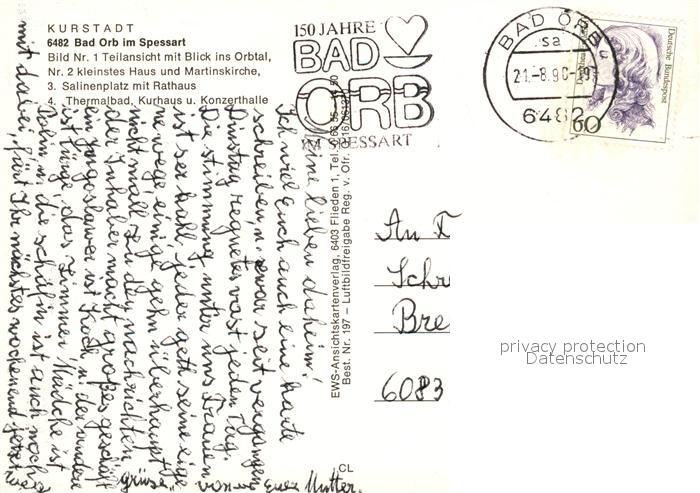 KURSTADT
6482 Bad Orb im Spessart
Bild Nr. 1 Teilansicht mit Blick ins Orbtal,
Nr. 2 kleinstes Haus und Martinskirche,
3. Salinenplatz mit Rathaus
4. Thermalbad, Kurhaus u. Konzerthalle
150 JAHRE
BAD
ORB
IM SPESSART
BAD ORB
sa
21.-8.90-19
6482
Deutsche Bundespost
60
EWS-Ansichtskartenverlag, 6403 Flieden 1, Tel.
Best. Nr. 197 – Luftbildfreigabe Reg. v. Ofr.
CL
Meine lieben daheim!
Ich will Euch auch eine karte
schreiben, u. zwar seit vergangen
Dinstag regnet es vast jeden Tag.
Die stimmung unter uns Frauen
ist ser kahl, jeder geht seine eige
ne wege, einige gehn überhaupt
nicht mall zu den nachrichten
der Inhaber macht großes geschäft
ein Jugoslawer ist Koch u. der andere
ist Lunge, das Zimmer Mädche ist
die schäfin ist auch noch
mit dabei, fürt Ihr nächstes wochenend
grüße
von Euer Mutter.
An
Schr
Bre
6083
privacy protection
Datenschutz